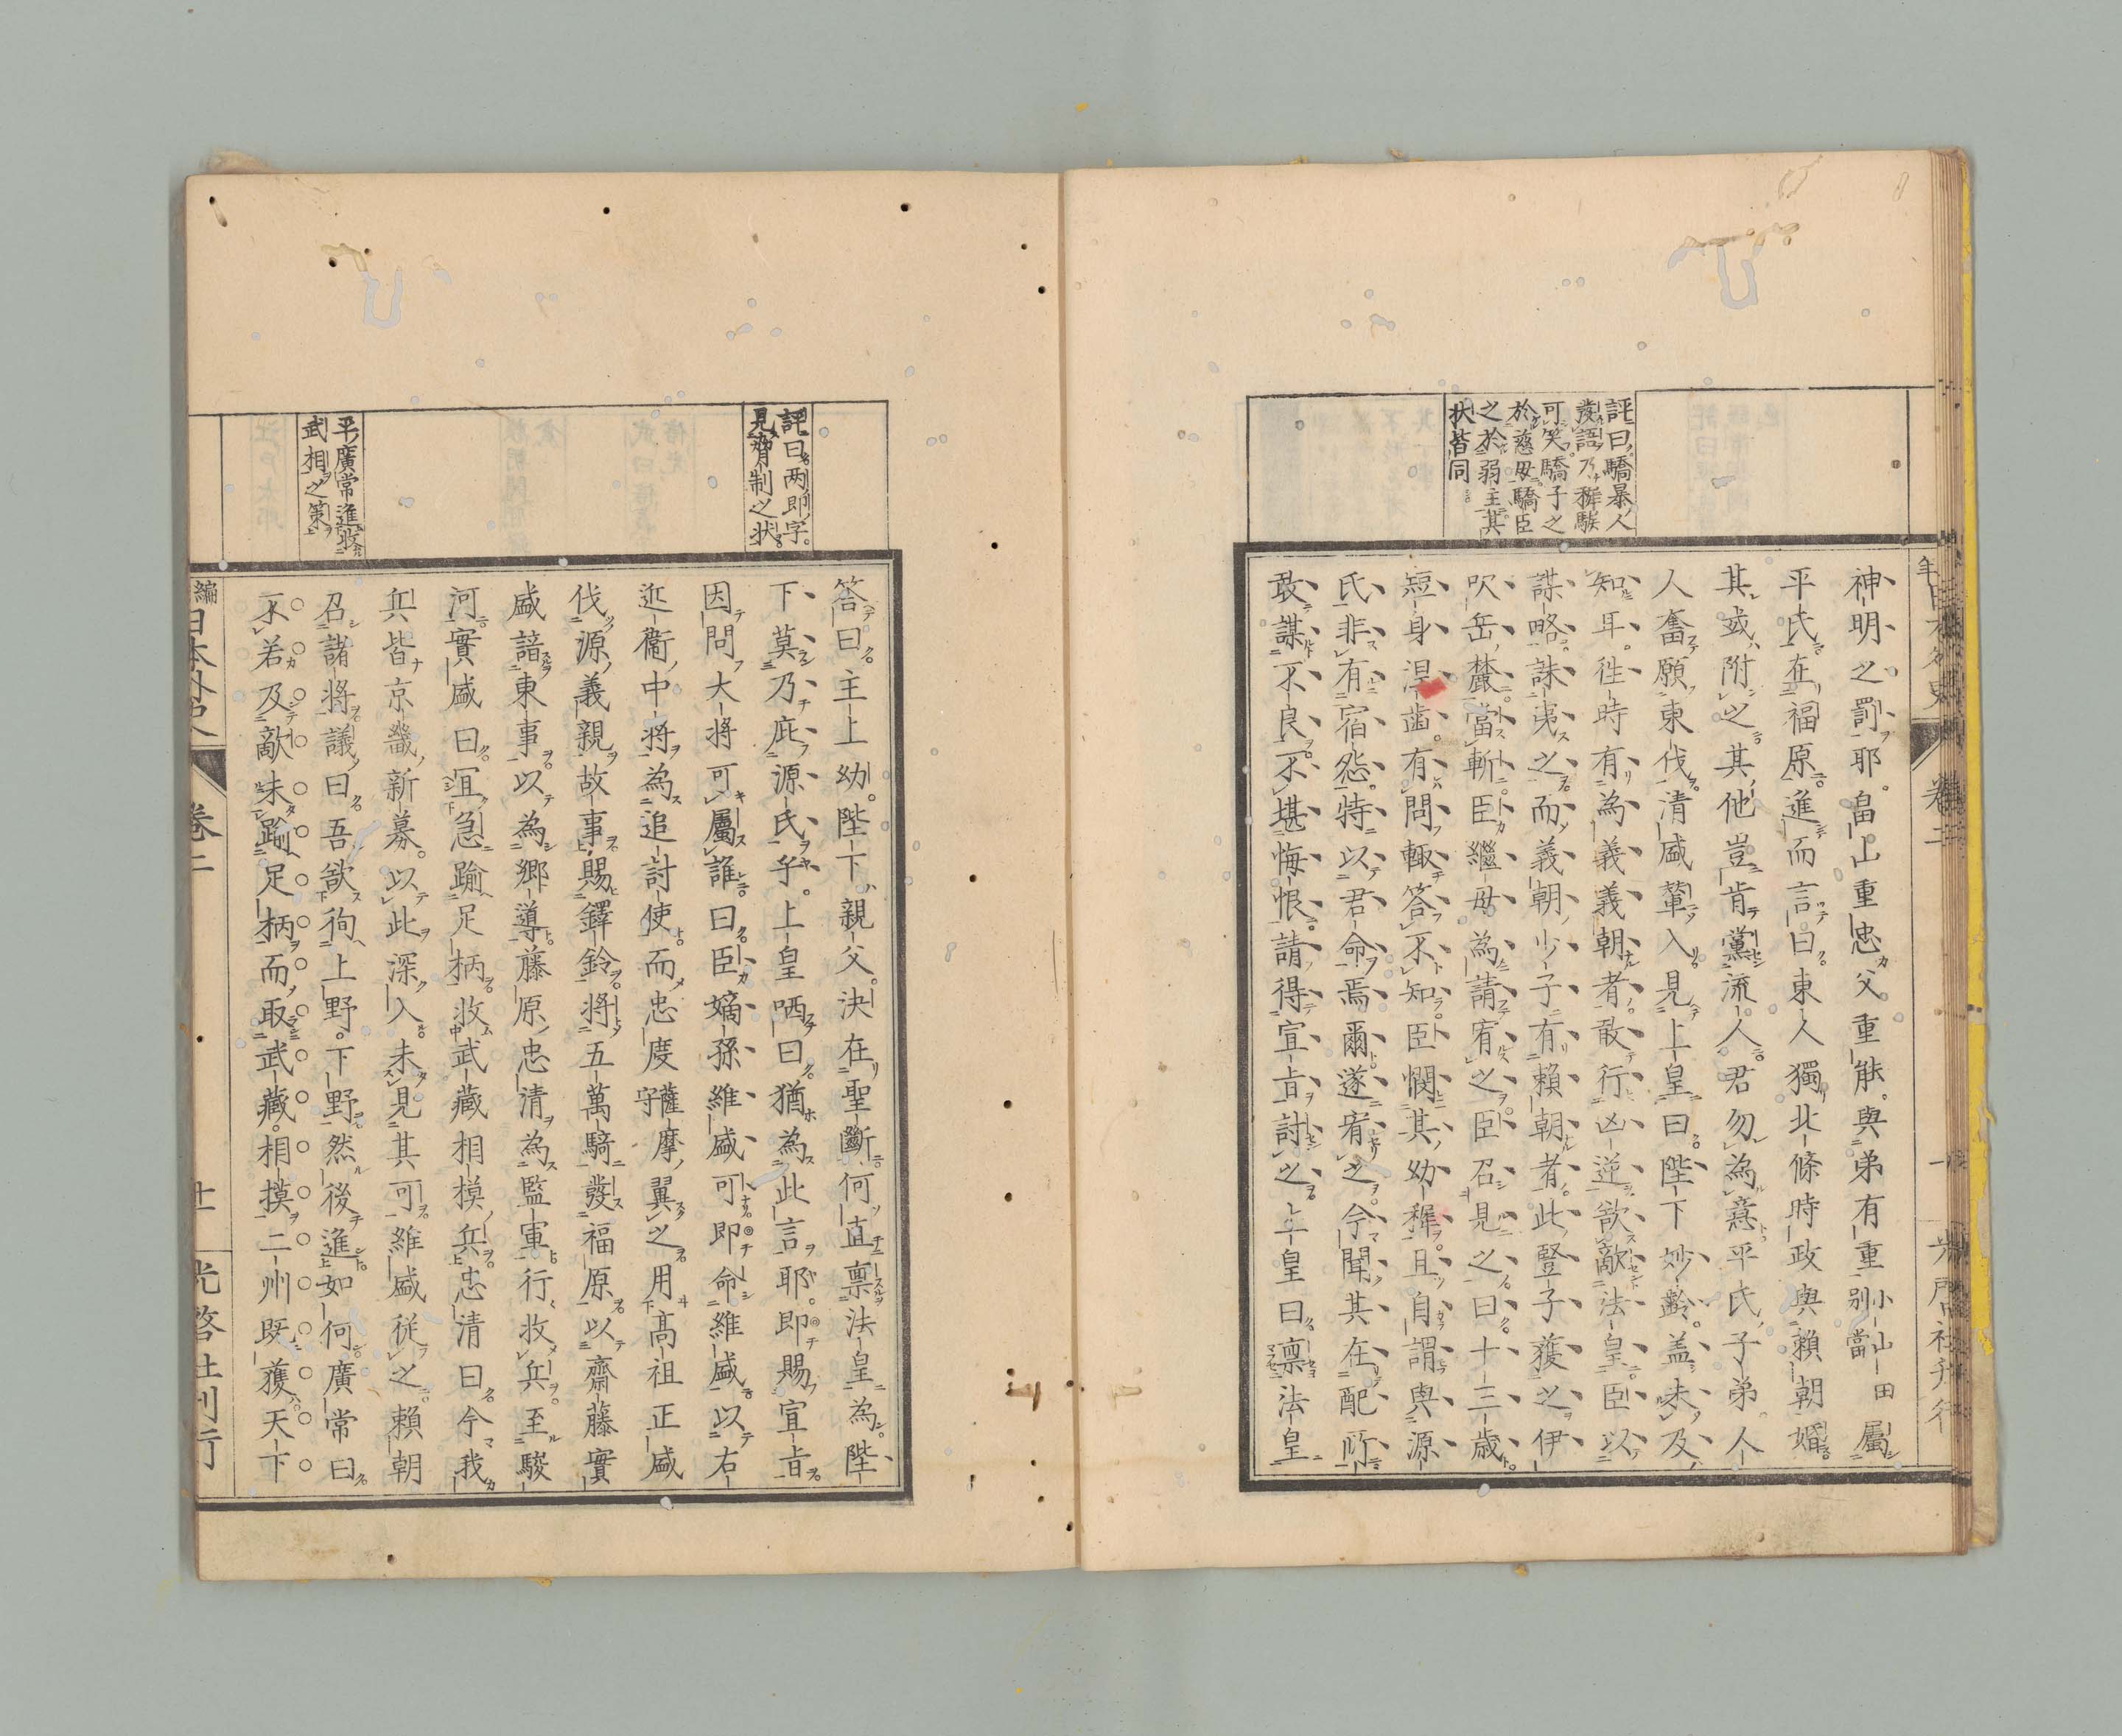 評曰驕暴人
發語乃穉騃
可笑驕子之
於慈母驕臣
之於弱主其
狀皆同
神明之罰耶畠山重忠父重能與弟有重小山田別當屬
平氏在福原進而言曰東人獨北條時政與賴朝婚
其或附之其他豈肯黨流人君勿為意平氏子弟人
人奮願東伐清盛輦入見上皇曰陛下妙齡蓋未及
知耳徃時有為義義朝者敢行凶逆欲敵法皇臣以
謀略誅夷之而義朝少子有賴朝者此豎子獲之伊
吹岳麓當斬臣繼母為請宥之臣召見之曰十三歲
短身涅齒有問輙答不知臣憫其幼穉且自謂與源
氏非有宿怨特以君命焉爾遂宥之今聞其在配所
敢謀不良不堪悔恨請得宣旨討之上皇曰稟法皇
評曰兩即字
見脅制之狀
平廣常進收
武相之策
答曰主上幼陛下親父決在聖斷何直稟法皇為陛
下莫乃庇源氏乎上皇哂曰猶為此言耶即賜宣旨
因問大將可屬誰曰臣嫡孫維盛可即命維盛以右
近衞中將為追討使而忠度薩摩守翼之用高祖正盛
伐源義親故事賜鐸鈴將五萬騎發福原以齋藤實
盛諳東事以為鄉導藤原忠清為監軍行收兵至駿
河實盛曰宜急踰足柄收武藏相模兵忠清曰今我
兵皆京畿新募以此深入未見其可維盛從之賴朝
召諸將議曰吾欲徇上野下野然後進如何廣常曰
不若及敵未踰足柄而取武藏相摸二州既獲天下
編
日本外史
卷二
十一
光啓社刊行